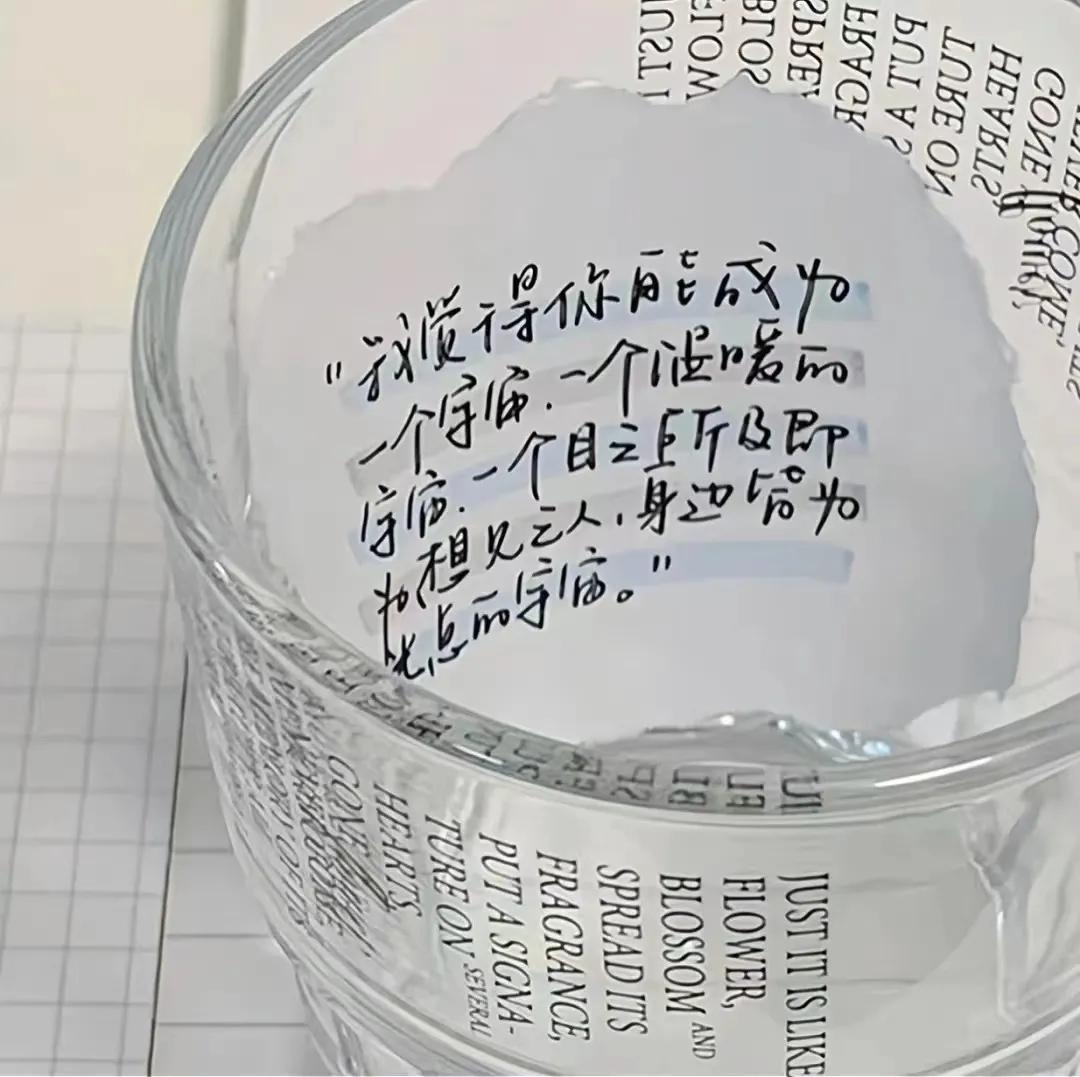 "我觉得你能成为
一个宇宙.一个温暖的
宇宙.一个目之所及即
为想见之人,身边皆为
光点的宇宙。"
JUST IT IS LIKE
FLOWER,
BLOSSOM AND
SPREAD ITS
FRAGRANCE,
PUT A SIGNA-
TURE ON SEVERAL
HEARTS
GONE